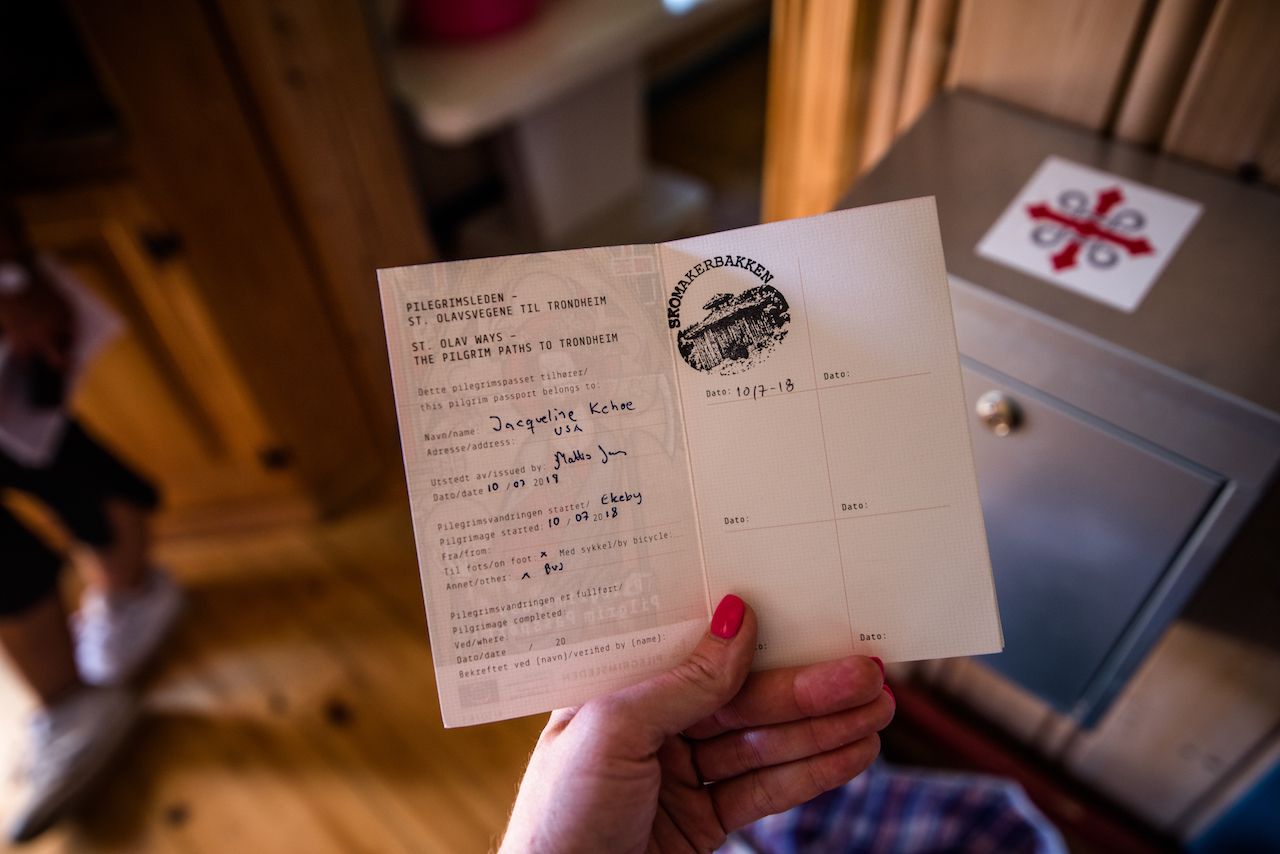 PILEGRIMSLEDEN –
ST. OLAVSVEGENE TIL TRONDHEIM
ST. OLAV WAYS –
THE PILGRIM PATHS TO TRONDHEIM
Dette pilegrimspasset tilhører/
this pilgrim passport belongs to:
Navn/name: Jacqueline Kehoe
Adresse/address: USA
Utstedt av/issued by:
Dato/date 10 / 07 2018
Pilegrimsvandringen startet/ Ekeby
Pilgrimage started: 10 / 07 2018
Fra/from:
Til fots/on foot: x Med sykkel/by bicycle:
Annet/other: x Bus
Pilegrimsvandringen er fullført/
Pilgrimage completed:
Ved/where:
Dato/date / 20
Bekreftet ved (navn)/verified by (name):
SKOMAKERBAKKEN
Dato: 10/7-18
Dato:
Dato:
Dato:
Dato: